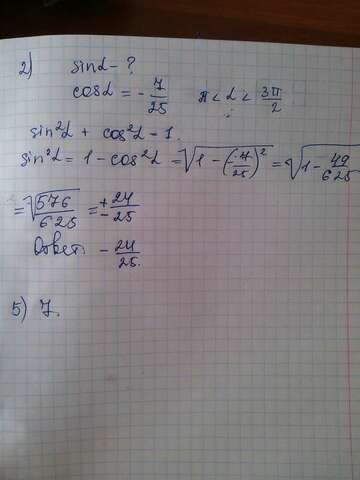 2) sinα - ?
cosα = - 7/25 π < α < 3π/2
sin²α + cos²α - 1.
sin²α = 1 - cos²α = √(1 - (-7/25)²) = √(1 - 49/625)
= √(576/625) = ± 24/25
Ответ - 24/25.
5) 7.